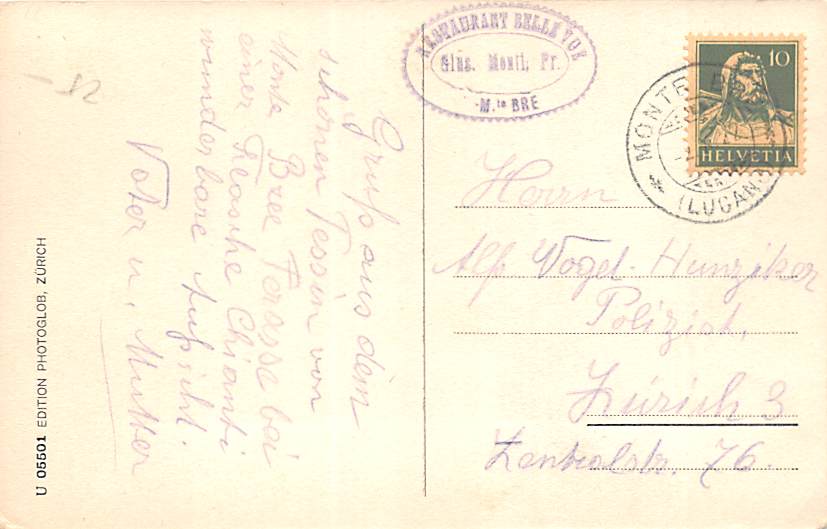 Gruß aus dem
schönen Tessin von
Monte Bree Terasse bei
einer Fleasche Chianti
wunderbare Aufsicht.
Vater u. Mutter
RESTAURANT BELLE VUE
Gius. Monti, Pr.
M.te BRE
10
HELVETIA
MONTE BRE
(LUGANO)
Herrn
Alf. Vogel-Hunziker
Polizist,
Zürich 3
Zentralstr. 76.
U 05501 EDITION PHOTOGLOB, ZÜRICH